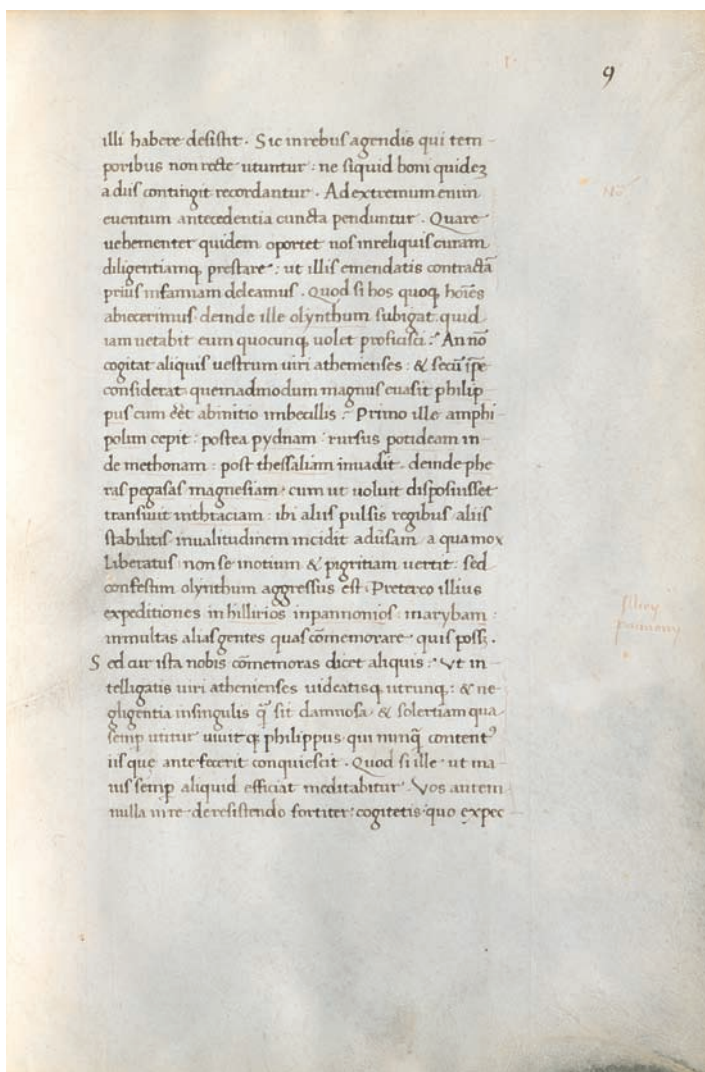 9
illi habere desistit. Sic inrebus agendis qui tem-
poribus non recte utuntur: ne siquid boni quideꝫ
a diis contingit recordantur. Adextremum enim
eventum antecedentia cuncta penduntur. Quare
uehementer quidem oportet nos inreliquis curam
diligentiamqꝫ prestare: ut illis emendatis contractā
prius infamiam deleamus. Quod si hos quoqꝫ hoīēs
abiecerimus: deinde ille olynthum subigat: quid
iam uetabit eum quocunqꝫ uolet proficisci: An nō
cogitat aliquis uestrum uiri athenienses: & secū ip̄e
considerat: quemadmodum magnus euasit philip
pus cum eēt abinitio imbecillis: Primo ille amphi-
polim cepit: postea pydnam: rursus potideam in-
de methonam: post thessaliam inuadit. deinde phe
ras pegasas magnesiam: cum ut uoluit disposuisset
transiuit inthraciam: ibi aliis pulsis regibus aliis
stabilitis inualitudinem incidit aduersam a qua mox
liberatus non se inotium & pigritiam uertit: sed
confestim olynthum aggressus est. Pretereo illius
expeditiones in hillirios inpannonios: marybam:
inmultas alias gentes quas cōmemorare quis possꝫ.
illiry
pannony
Sed cur ista nobis cōmemoras dicet aliquis: Ut in-
telligatis uiri athenienses uideatisqꝫ utrunqꝫ: & ne-
gligentia insingulis q̄ sit damnosa & solertiam qua
semp utitur uiuitqꝫ philippus qui nunq̄ contentꝰ
iis que ante fecerit conquiescit. Quod si ille ut ma-
ius semp aliquid efficiat meditabitur. Vos autem
nulla inre deresistendo fortiter: cogitetis quo expec